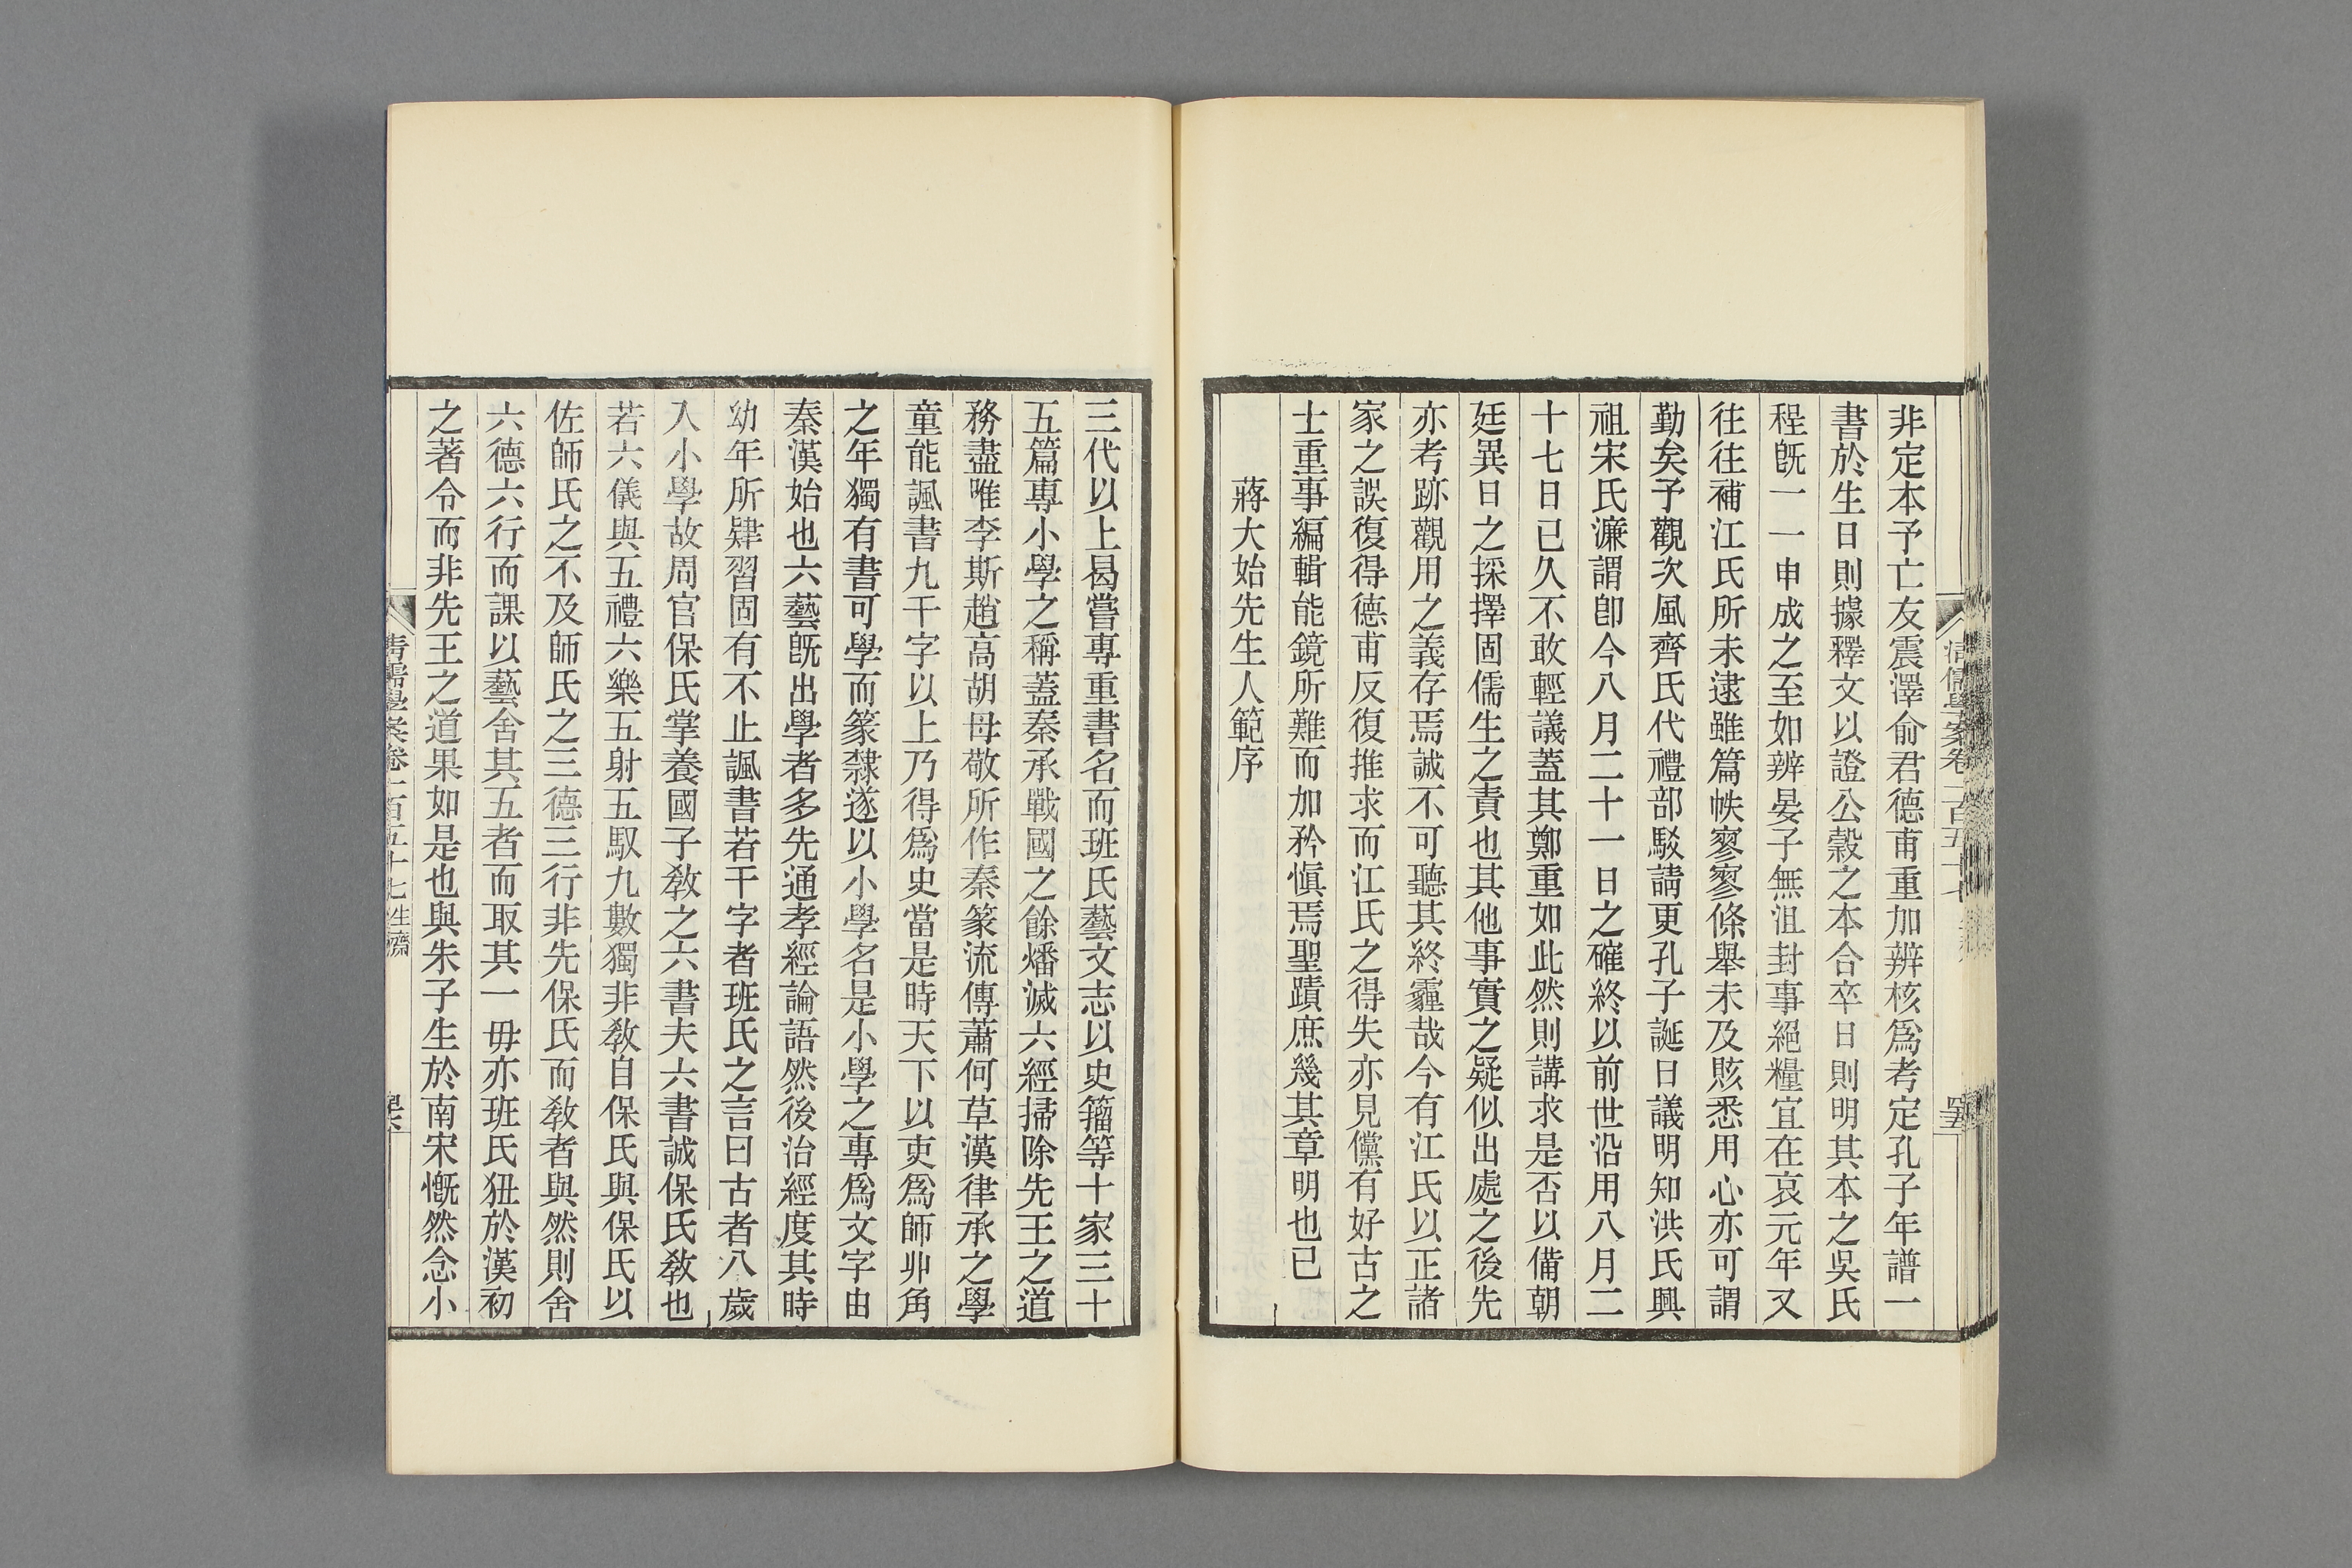 非定本予亡友震澤俞君德甫重加辨核爲考定孔子年譜一
書於生日則據釋文以證公穀之本合卒日則明其本之吳氏
程旣一一申成之至如辨晏子無沮封事絕糧宜在哀元年又
往往補江氏所未逮雖篇帙寥寥條舉未及賅悉用心亦可謂
勤矣予觀次風齊氏代禮部駁請更孔子誕日議明知洪氏興
祖宋氏濂謂卽今八月二十一日之確終以前世沿用八月二
十七日已久不敢輕議蓋其鄭重如此然則講求是否以備朝
廷異日之採擇固儒生之責也其他事實之疑似出處之後先
亦考跡觀用之義存焉誠不可聽其終霾哉今有江氏以正諸
家之誤復得德甫反復推求而江氏之得失亦見儻有好古之
士重事編輯能鏡所難而加矜愼焉聖蹟庶幾其章明也已
蔣大始先生人範序
三代以上曷嘗專重書名而班氏藝文志以史籀等十家三十
五篇專小學之稱蓋秦承戰國之餘燔滅六經掃除先王之道
務盡唯李斯趙高胡母敬所作秦篆流傳蕭何草漢律承之學
童能諷書九千字以上乃得爲史當是時天下以吏爲師丱角
之年獨有書可學而篆隸遂以小學名是小學之專爲文字由
秦漢始也六藝旣出學者多先通孝經論語然後治經度其時
幼年所肄習固有不止諷書若干字者班氏之言曰古者八歲
入小學故周官保氏掌養國子敎之六書夫六書誠保氏敎也
若六儀與五禮六樂五射五馭九數獨非敎自保氏與保氏以
佐師氏之不及師氏之三德三行非先保氏而敎者與然則舍
六德六行而課以藝舍其五者而取其一毋亦班氏狃於漢初
之著令而非先王之道果如是也與朱子生於南宋慨然念小
清儒學案卷一百五十七 生齋